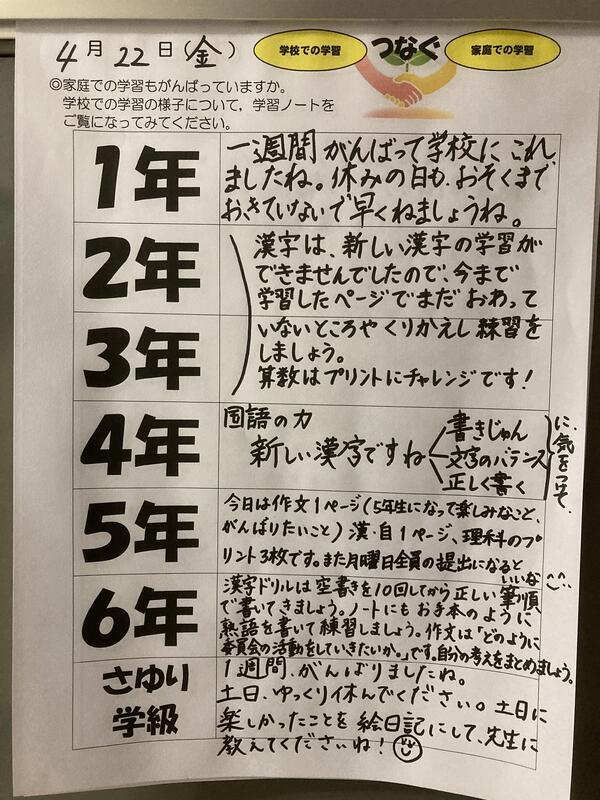 4月22日(金)
学校での学習 つなぐ 家庭での学習
◎家庭での学習もがんばっていますか。
学校での学習の様子について,学習ノートを
ご覧になってみてください。
1年
一週間がんばって学校にこれ
ましたね。休みの日も、おそくまで
おきていないで早くねましょうね。
2年
3年
漢字は、新しい漢字の学習が
できませんでしたので、今まで
学習したページでまだおわって
いないところやくりかえし練習を
しましょう。
算数はプリントにチャレンジです!
4年
国語の力
新しい漢字ですね
書きじゅん
文字のバランス
正しく書く
に、気をつけて、
5年
今日は作文1ページ(5年生になって楽しみなこと、
がんばりたいこと)漢・自1ページ、理科のプ
リント3枚です。また月曜日全員の提出になると
いいな^^
6年
漢字ドリルは空書きを10回してから正しい筆順
で書いてきましょう。ノートにもお手本のように
熟語を書いて練習しましょう。作文は「どのように
委員会の活動をしていきたいか。」です。自分の考えをまとめましょう。
さゆり
学級
1週間、がんばりましたね。
土日、ゆっくり休んでください。土日に
楽しかったことを絵日記にして、先生に
教えてくださいね!